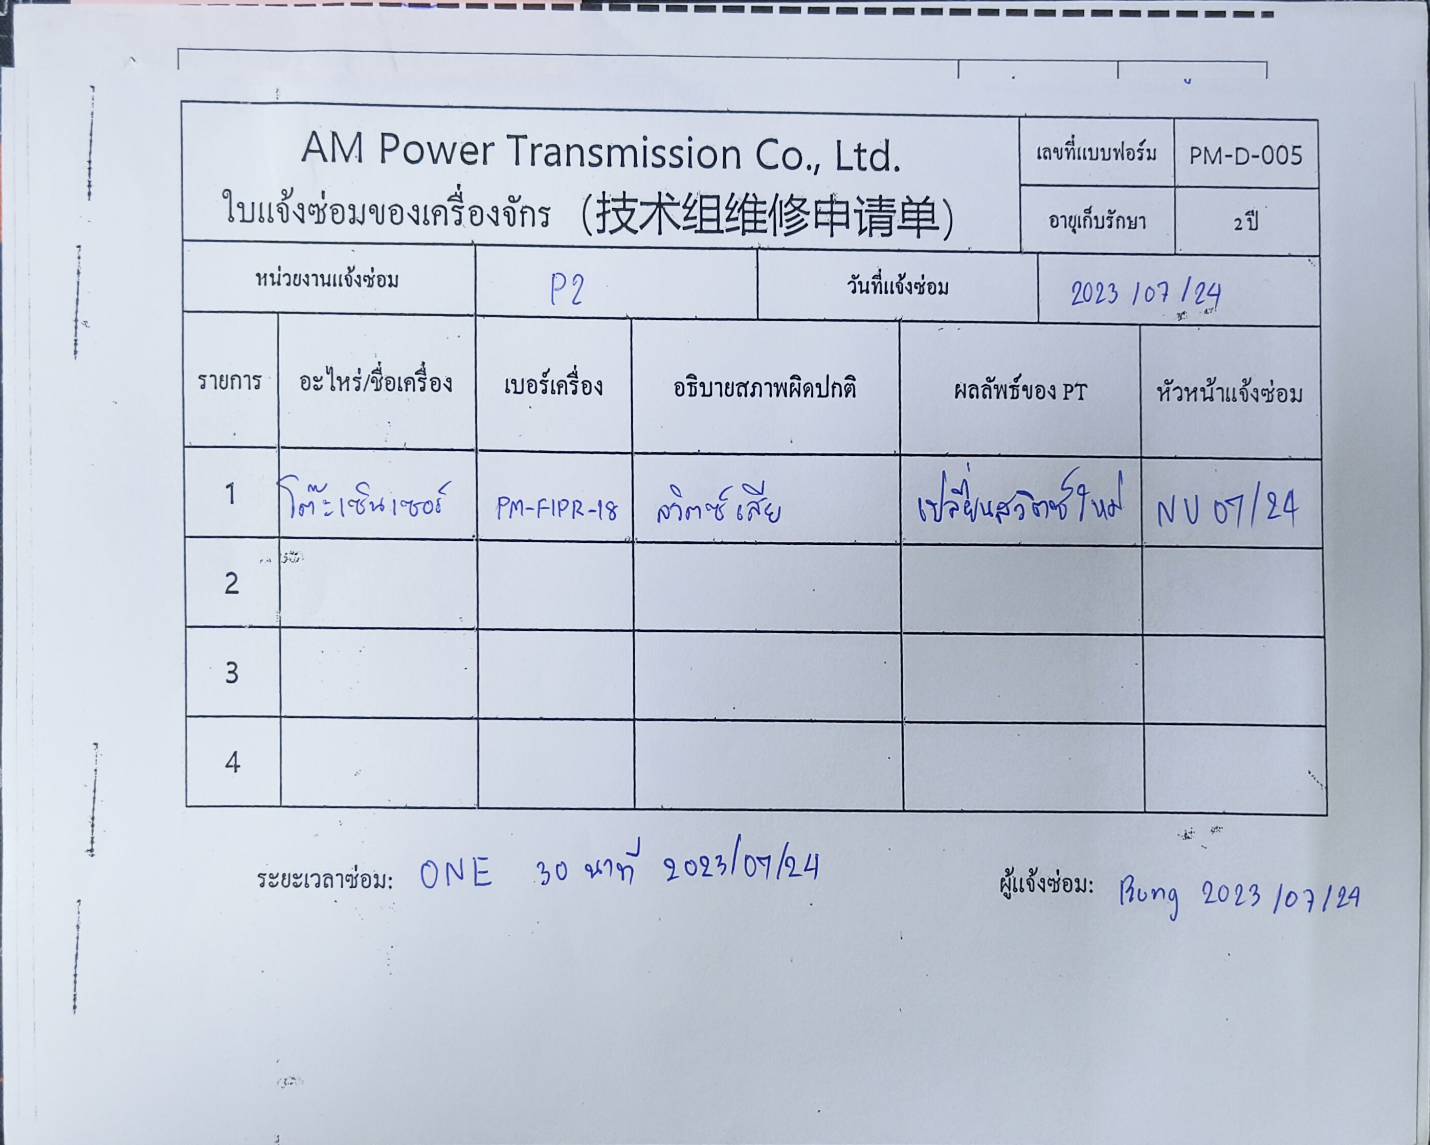 AM Power Transmission Co., Ltd.
ใบแจ้งซ่อมของเครื่องจักร (技术组维修申请单)
เลขที่แบบฟอร์ม PM-D-005
อายุเก็บรักษา 2 ปี
หน่วยงานแจ้งซ่อม P2 วันที่แจ้งซ่อม 2023/07/24
รายการ อะไหร่/ชื่อเครื่อง เบอร์เครื่อง อธิบายสภาพผิดปกติ ผลลัพธ์ของ PT หัวหน้าแจ้งซ่อม
1 โต๊ะเซินเซอร์ PM-FIPR-18 สวิตซ์เสีย เปลี่ยนสวิตซ์ใหม่ NU 07/24
2
3
4
ระยะเวลาซ่อม: ONE 30 นาที 2023/07/24
ผู้แจ้งซ่อม: Bung 2023/07/24